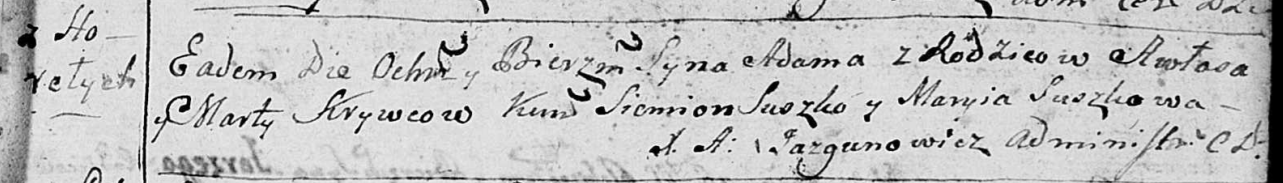 z Ho-
rełych
Eadem Die Ochrz y Bierzm Syna Adama z Rodzicow Awłasa
y Marty Krywcow Kum Siemion Suszko y Maryia Suszkowa-
A: Jazgunowicz Administr C D: